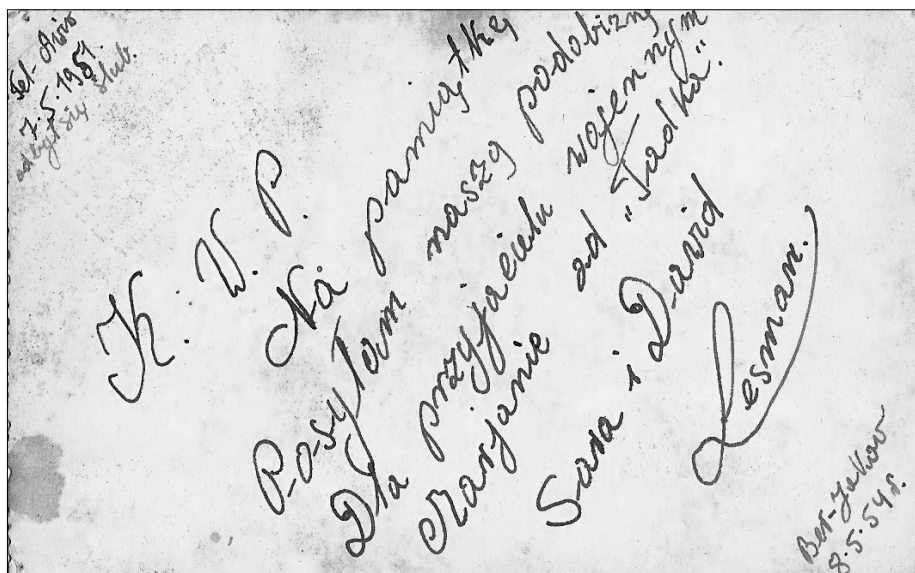 Tel-Aviv
7.5.1951.
odbył się ślub.
K. W. P.
Na pamiątkę
Posyłam naszą podobiznę
Dla przyjacielu wojennym
Marjanie od "Tadka".
Sara i Dawid
Lesman.
Ber-Jakow
8.5.54 r.